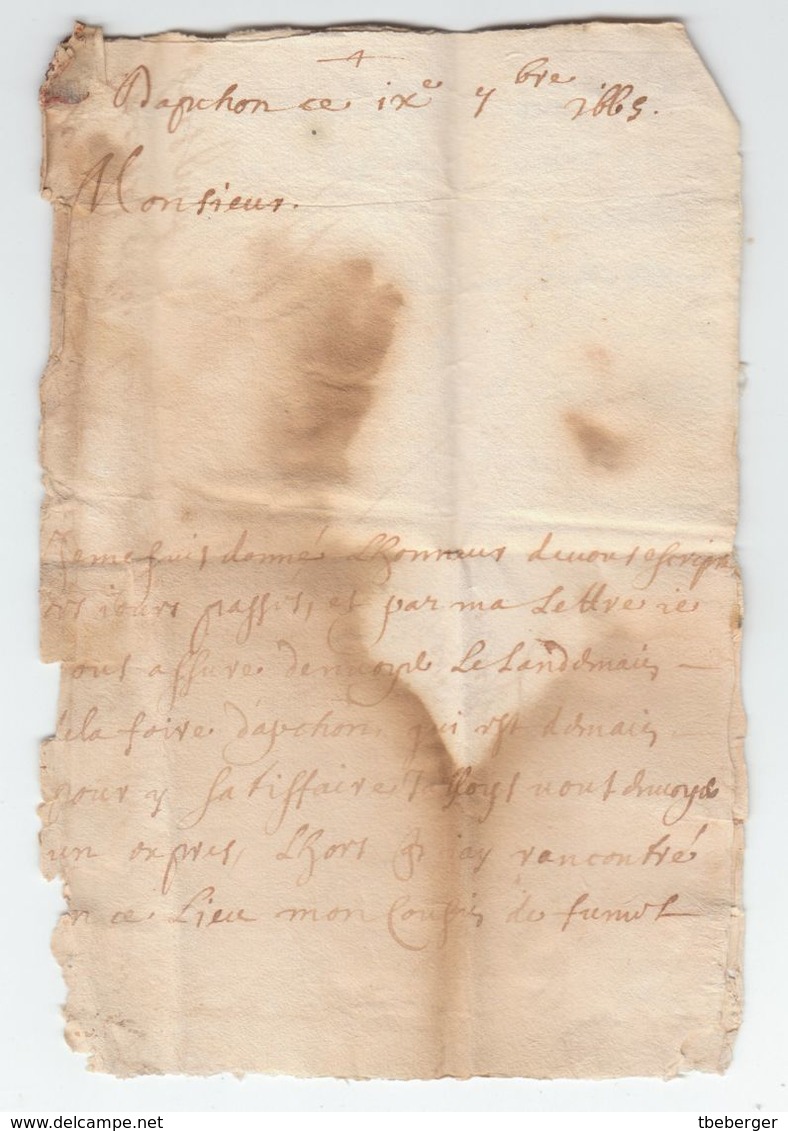 Dapchon ce ixe 7bre 1665.
Monsieur.
Je me suis donné Lhonneur de vous escrire
jours passes, et par ma Lettre ie
ous assure denvoyé Le Landemain
la foire dapchon, qui est demain
pour y satisfaire Jalloys vous envoyé
un expres, Lhors Je ay rancontré
en ce Lieu mon Cousin de
delcampe.net
tbeberger